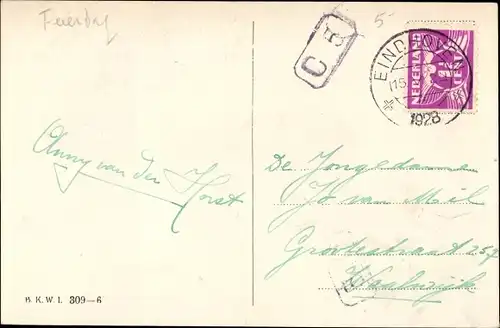 Feierdag
5-
C 5
EINDHOVEN
1928
NEDERLAND
2½
CENT
Anny van der Horst
De Jongedame
Jo van Mil
Grootestraat 257
Waalwijk
B. K. W. I. 309—6